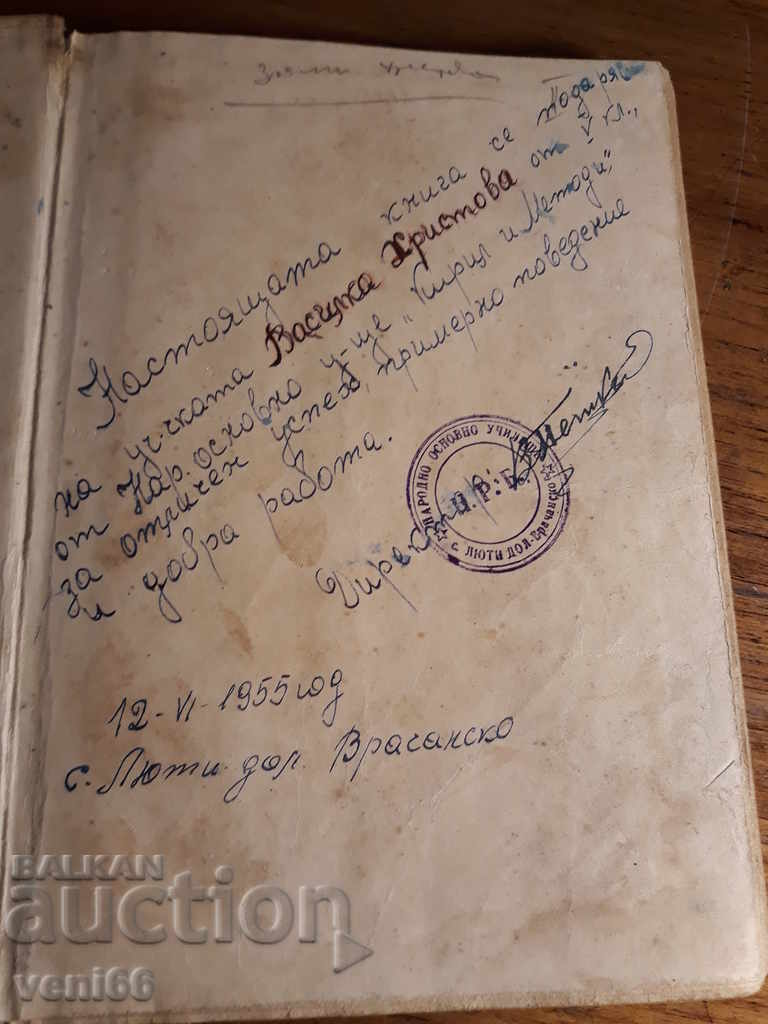 Настоящата книга се подаря
на уч-чката Василка Христова от V кл.,
от Нар. основно у-ще "Кирил и Методи",
за отличен успех, примерно поведение
и добра работа.
Директор:
НАРОДНО ОСНОВНО УЧИЛИЩЕ
Н.Р.Б.
с. ЛЮТИ ДОЛ-Врачанско
12-VI-1955 год
с. Люти дол. Врачанско
BALKAN
auction
veni66